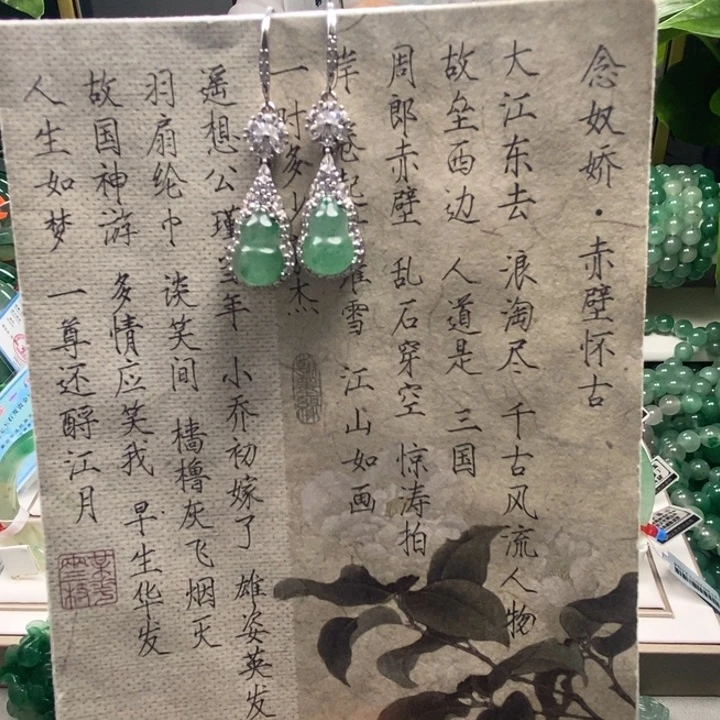 念奴娇·赤壁怀古
大江东去 浪淘尽 千古风流人物
故垒西边 人道是 三国
周郎赤壁 乱石穿空 惊涛拍
岸 卷起 堆雪 江山如画
一时多少 杰
遥想公瑾当年 小乔初嫁了 雄姿英发
羽扇纶巾 谈笑间 樯橹灰飞烟灭
故国神游 多情应笑我 早生华发
人生如梦 一尊还酹江月